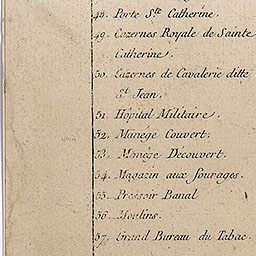 48. Porte S.te Catherine.
49. Cazernes Royale de Sainte
Catherine.
50. Cazernes de Cavalerie ditte
S.t Jean.
51. Hôpital Militaire.
52. Manege Couvert.
53. Manège Découvert.
54. Magazin aux fourages.
55. Pressoir Banal
56. Moulins.
57. Grand Bureau du Tabac.